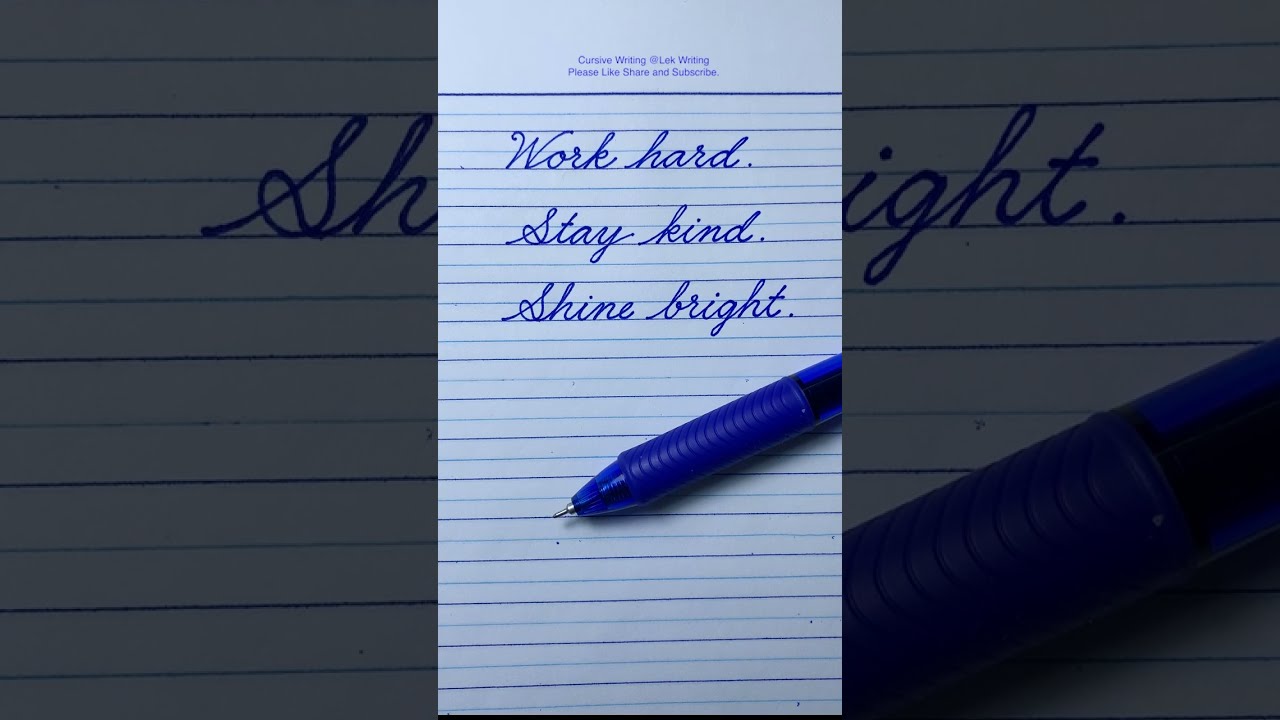 Cursive Writing @Lek Writing
Please Like Share and Subscribe.
Work hard.
Stay kind.
Shine bright.